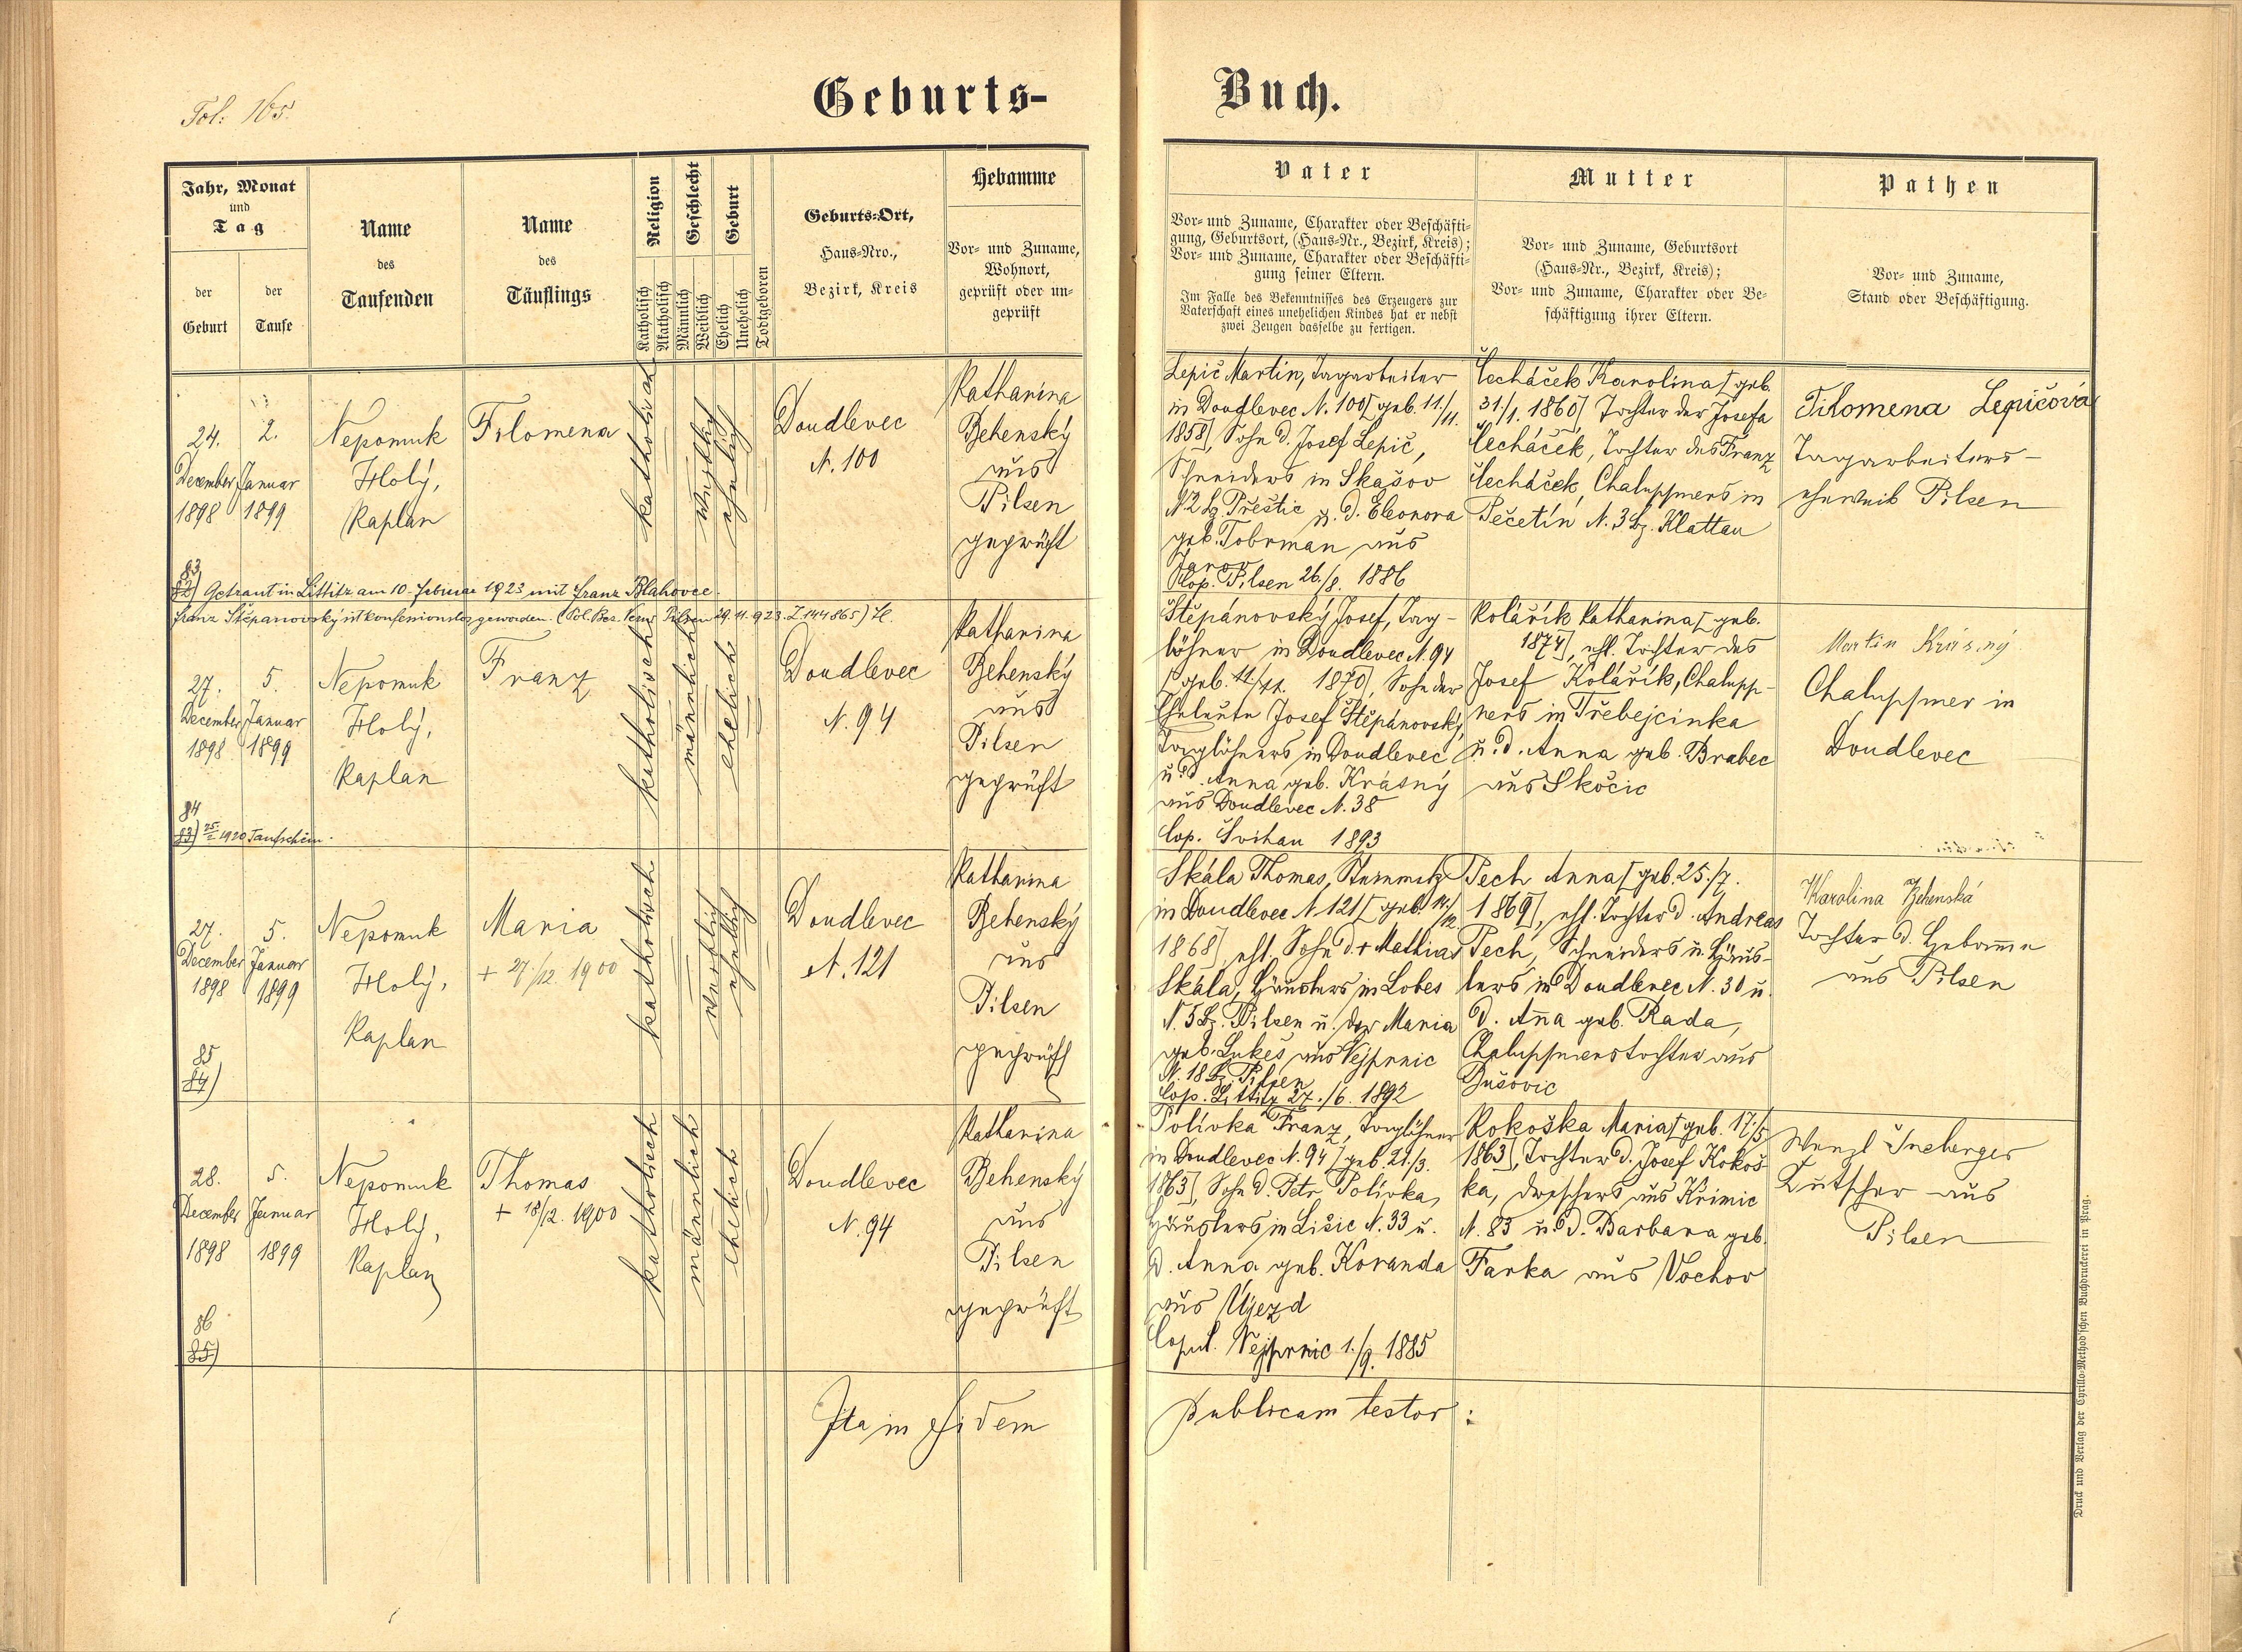 Fol: 165.
Geburts-
Buch.
Jahr, Monat
und
Tag
der
Geburt
der
Taufe
Name
des
Taufenden
Name
des
Täuflings
Religion
Katholisch
Akatholisch
Geschlecht
Männlich
Weiblich
Geburt
Ehelich
Unehelich
Todtgeboren
Geburts-Ort,
Haus-Nro.,
Bezirk, Kreis
Hebamme
Vor- und Zuname,
Wohnort,
geprüft oder un-
geprüft
Vater
Vor- und Zuname, Charakter oder Beschäfti-
gung, Geburtsort, (Haus-Nr., Bezirk, Kreis);
Vor- und Zuname, Charakter oder Beschäfti-
gung seiner Eltern.
Im Falle des Bekenntnisses des Erzeugers zur
Vaterschaft eines unehelichen Kindes hat er nebst
zwei Zeugen dasselbe zu fertigen.
Mutter
Vor- und Zuname, Geburtsort
(Haus-Nr., Bezirk, Kreis);
Vor- und Zuname, Charakter oder Be-
schäftigung ihrer Eltern.
Pathen
Vor- und Zuname,
Stand oder Beschäftigung.
24.
December
1898
2.
Januar
1899
Nepomuk
Holý,
Kaplan
Filomena
katholisch
weiblich
ehelich
Doudlevec
N. 100
Katharina
Behenský
aus
Pilsen
geprüft
Lepič Martin, Tagarbeiter
in Doudlevec N. 100 [geb. 11./11.
1858], Sohn d. Josef Lepič,
Schneiders in Skašov
N 2 Bz. Přeštic u. d. Eleonora
geb. Tobrman aus
Janov
Cop. Pilsen 26./8. 1886
Čecháček Karolina [geb.
31./1. 1860], Tochter der Josefa
Čecháček, Tochter des Franz
Čecháček, Chaluppners in
Pečetín N. 3 Bz. Klattau
Filomena Lepičová
Tagarbeiters-
eheweib Pilsen
83
82) Getraut in Littitz am 10. Februar 1923 mit Franz Blahovec.
Franz Štěpanovský ist konfessionslos geworden. (Pol. Bez. Verw. Pilsen 29.11.923. Z 144865) H.
27.
December
1898
5.
Januar
1899
Nepomuk
Holý,
Kaplan
Franz
katholisch
männlich
ehelich
Doudlevec
N. 94
Katharina
Behenský
aus
Pilsen
geprüft
Štěpánovský Josef, Tag-
löhner in Doudlevec N. 94
[geb. 11./11. 1870], Sohn der
Eheleute Josef Štěpánovský,
Taglöhners in Doudlevec
u. d. Anna geb. Krásný
aus Doudlevec N. 38
Cop. Švihau 1893
Kolářík Katharina [geb.
1874], ehl. Tochter des
Josef Kolářík, Chalupp-
ners in Třebejcinka
u. d. Anna geb. Brabec
aus Skočic
Martin Krásný
Chaluppner in
Doudlevec
84
83) 25./2 1920 Taufschein.
27.
December
1898
5.
Januar
1899
Nepomuk
Holý,
Kaplan
Maria
+ 27./12. 1900
katholisch
weiblich
ehelich
Doudlevec
N. 121
Katharina
Behenský
aus
Pilsen
geprüft
Skála Thomas, Steinmetz
in Doudlevec N 121 [geb. 14./12.
1868], ehl. Sohn d. + Mathias
Skála, Häuslers in Lobes
N. 5 Bz. Pilsen u. der Maria
geb. Lukeš aus Vejprnic
N. 18 Bz. Pilsen
Cop. Littitz 27./6. 1892
Pech Anna [geb. 25./7.
1869], ehl. Tochter d. Andreas
Pech, Schneiders u. Häus-
lers in Doudlevec N. 30 u.
d. Anna geb. Rada,
Chaluppnerstochter aus
Dušovic
Karolina Behenská
Tochter d. Hebamme
aus Pilsen
85
84)
28.
December
1898
5.
Januar
1899
Nepomuk
Holý,
Kaplan
Thomas
+ 18/12. 1900
katholisch
männlich
ehelich
Doudlevec
N. 94
Katharina
Behenský
aus
Pilsen
geprüft
Polívka Franz, Taglöhner
in Doudlevec N. 94 [geb. 21./3.
1863], Sohn d. Petr Polívka,
Häuslers in Lišic N. 33 u.
d. Anna geb. Koranda
aus Ujezd
Copul. Vejprnic 1./9. 1885
Kokoška Maria [geb. 17./5
1863], Tochter d. Josef Kokoš-
ka, Dreschers aus Křimic
N. 83 u. d. Barbara geb.
Farka aus Vochov
Wenzl
Kutscher aus
Pilsen
86
85)
Ita in fidem
publicam testor:
Druck und Verlag der Cyrillo-Method'schen Buchdruckerei in Prag.